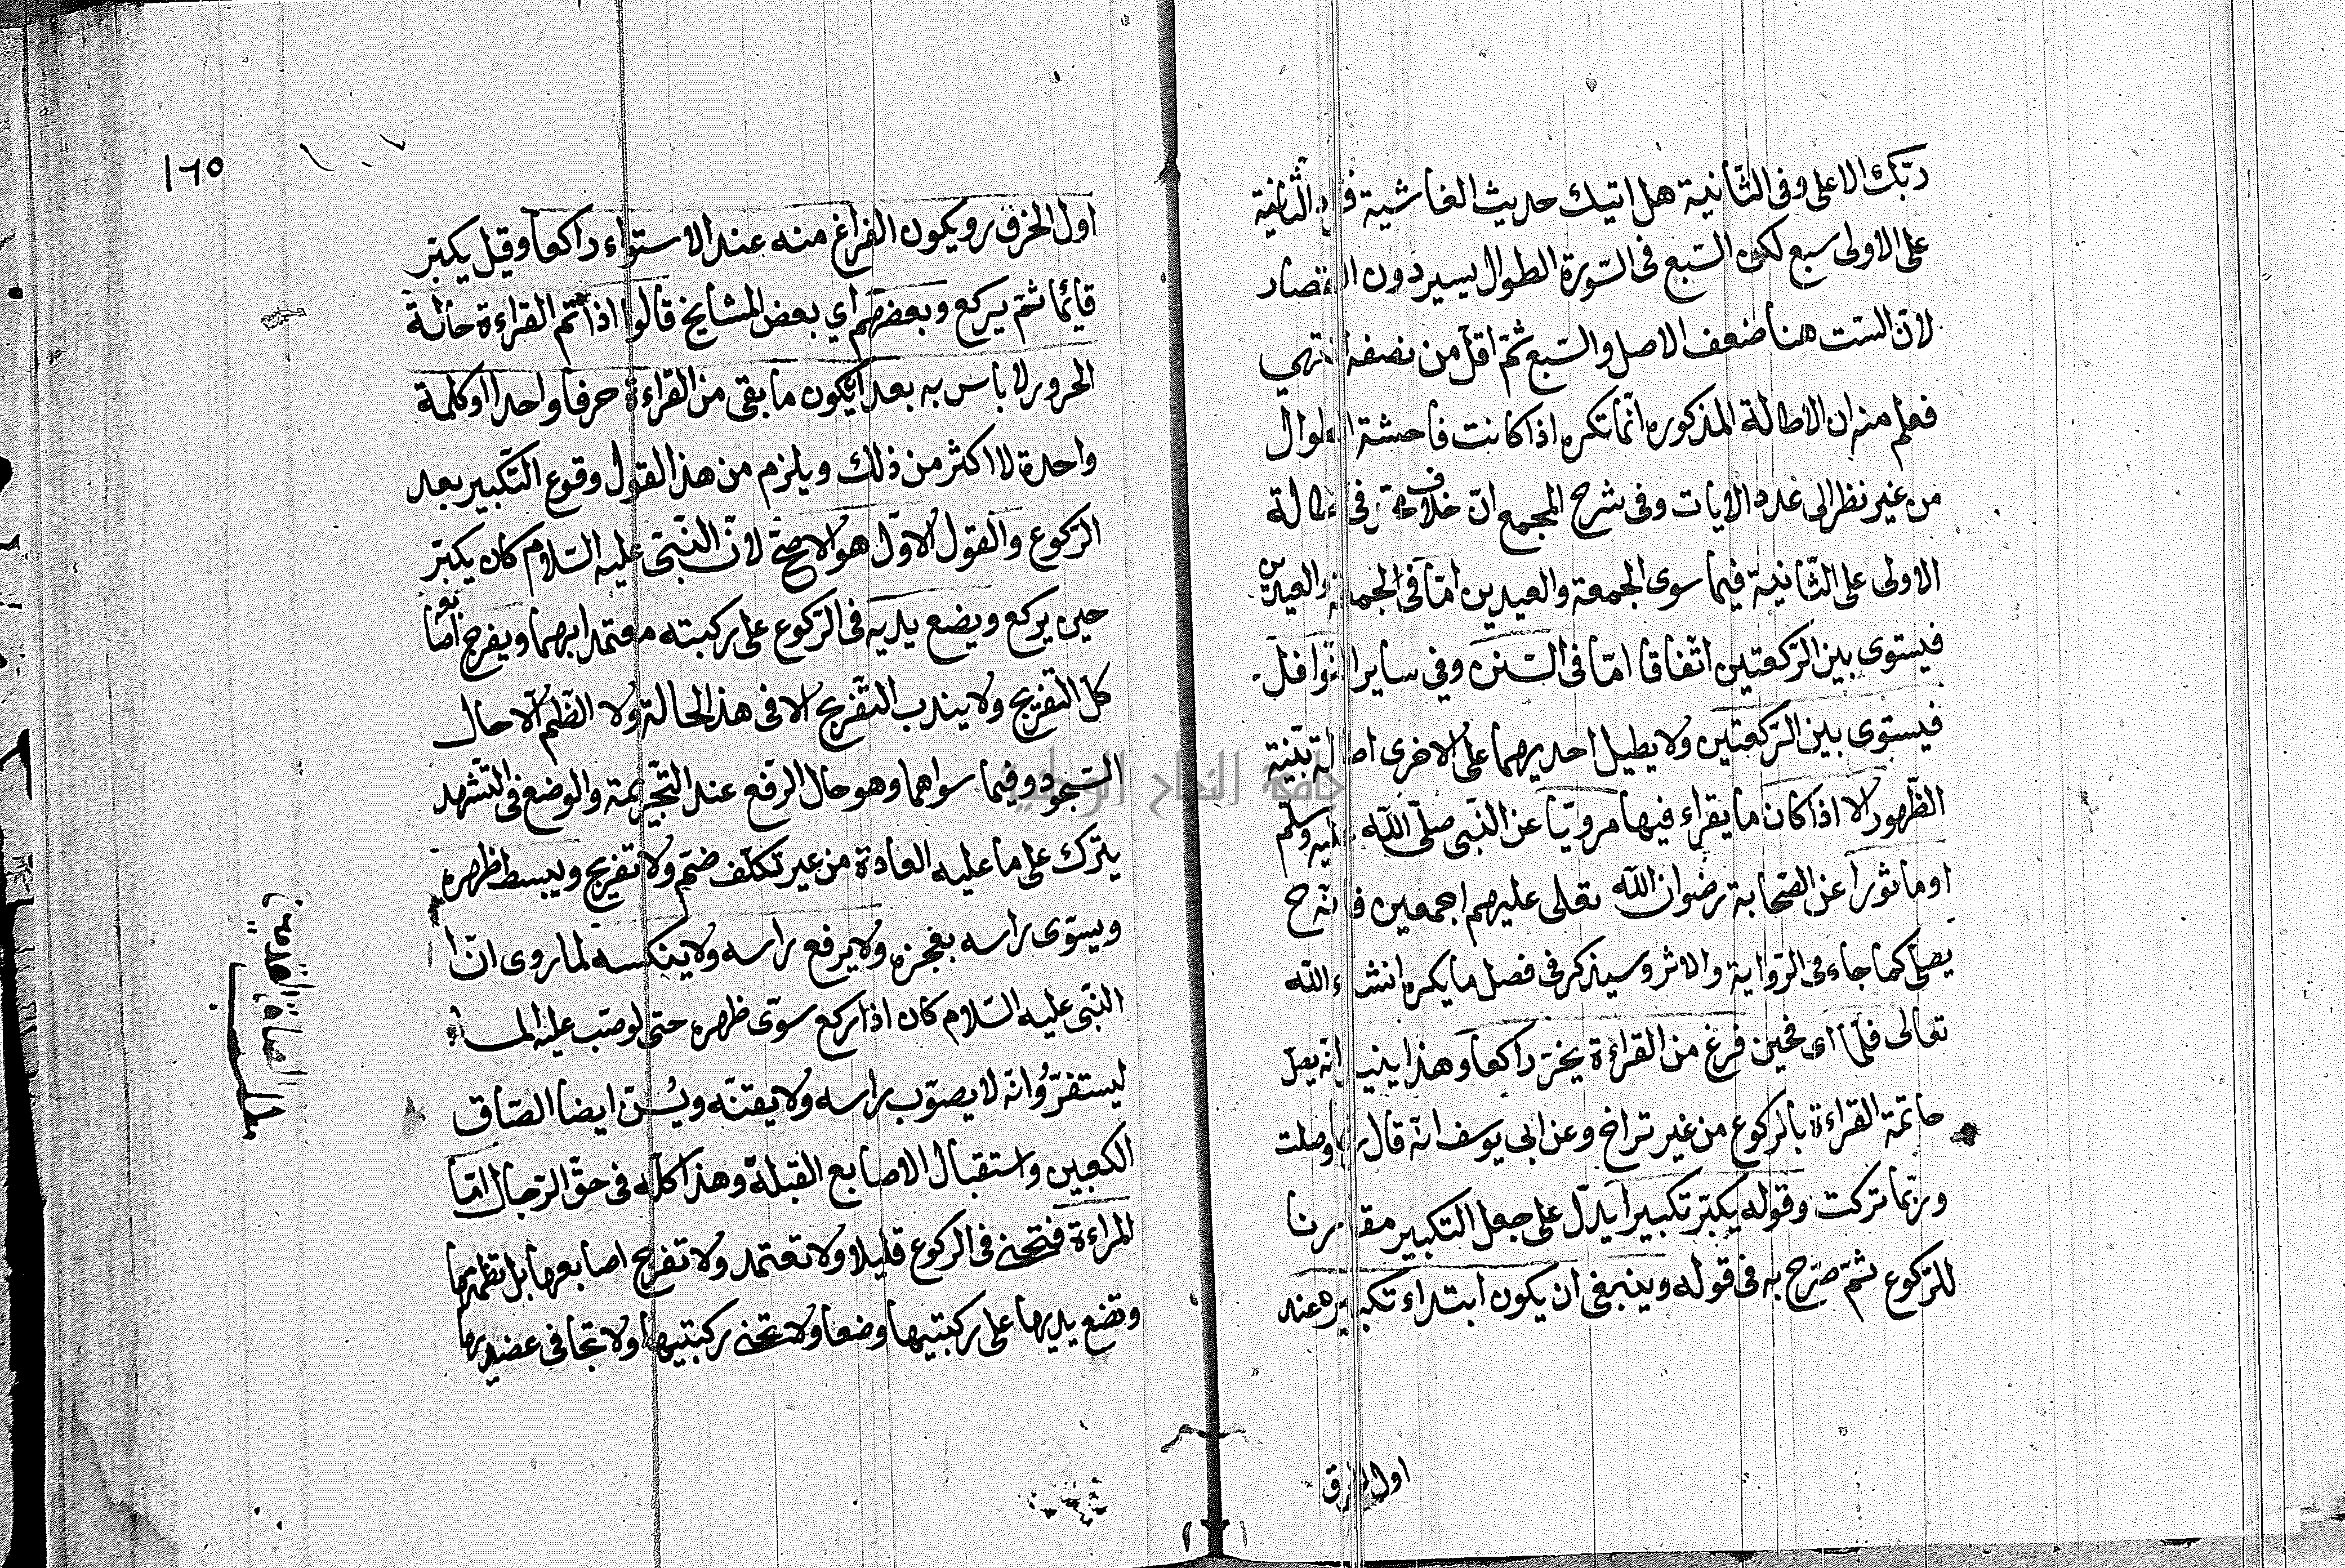 ربّك الاعلى وفى الثّانية هل اتيك حديث الغاشية فزاد الثانية
على الاولى سبع لكن السّبع فى السّورة الطوال يسير دون القصار
لانّ السّت هنا ضعف الاصل والسّبع ثمّ اقلّ من نصفه انتهي
فعلم منه ان الاطالة المذكورة انّما تكره اذا كانت فاحشة الطوال
من غير نظر الى عدد الايات وفى شرح المجمع انّ خلاف فى اطالة
الاولى على الثّانية فيما سوى الجمعة والعيدين امّا فى الجمعة والعيدين
فيستوى بين الرّكعتين اتّفاقا امّا فى السّنن وفي ساير النّوافل
فيستوى بين الرّكعتين ولا يطيل احديهما على الاخرى اطالة بيّنة
الظّهور الا اذا كان ما يقراء فيها مرويّا عن النّبى صلّى الله عليه وسلّم
او ماثورا عن الصّحابة رضوان الله تعلى عليهم اجمعين فانّه ح
يصلّى كما جاء فى الرّواية والاثر وسيذكر فى فصل ما يكره انشاء الله
تعالى فلمّا اى فحين فرغ من القراءة يخرّ راكعا وهذا انه يصل
خاتمة القراءة بالركوع من غير تراخ وعن ابى يوسف انّه قال ربّما وصلت
وربّما تركت وقوله يكبّر تكبيرا يدّل على جعل التكبير مقارنا
للرّكوع ثمّ صرّح به فى قوله وينبغى ان يكون ابتداء تكبيره عند
اول الخرق
١٦٥
اول الخرور ويكون الفراغ منه عند الاستواء راكعا وقيل يكبّر
قائما ثمّ يركع وبعضهم اي بعض المشايخ قالوا اذا اتمّ القراءة حالة
الخرور لا باس به بعد ان يكون ما بقى من القراءة حرفا واحدا او كلمة
واحدة لا اكثر من ذلك ويلزم من هذا القول وقوع التّكبير بعد
الرّكوع والقول الاوّل هو الاصحّ لانّ النّبىّ عليه السّلام كان يكبّر
حين يركع ويضع يديه فى الرّكوع على ركبته معتمدا بهما ويفرج اصابعه
كل التفريج ولا يندب التّفريج الا فى هذا الحالة ولا الظّم الا حال
السّجود وفيما سواهما وهو حال الرّفع عند التّحريمة والوضع فى التّشهد
يترك على ما عليه العادة من غير تكلّف ضمّ ولا تفريج ويبسط ظهره
ويسوّى راسه بعجزه ولا يرفع راسه ولا ينكسه لما روى انّ
النّبى عليه السّلام كان اذا ركع سوّى ظهره حتى لو صبّ عليه الماء
ليستقرّ وانّه لا يصوّب راسه ولا يقنّه ويُسنّ ايضا الصّاق
الكعبين واستقبال الاصابع القبلة وهذا كلّه فى حقّ الرّجال امّا
المراءة فتحنى فى الركوع قليلا ولا تعتمد ولا تفرج اصابعها بل تظمّها
وتضع يديها على ركبتيها وضعا ولا تحنى ركبتيها ولا تجافى عضديها